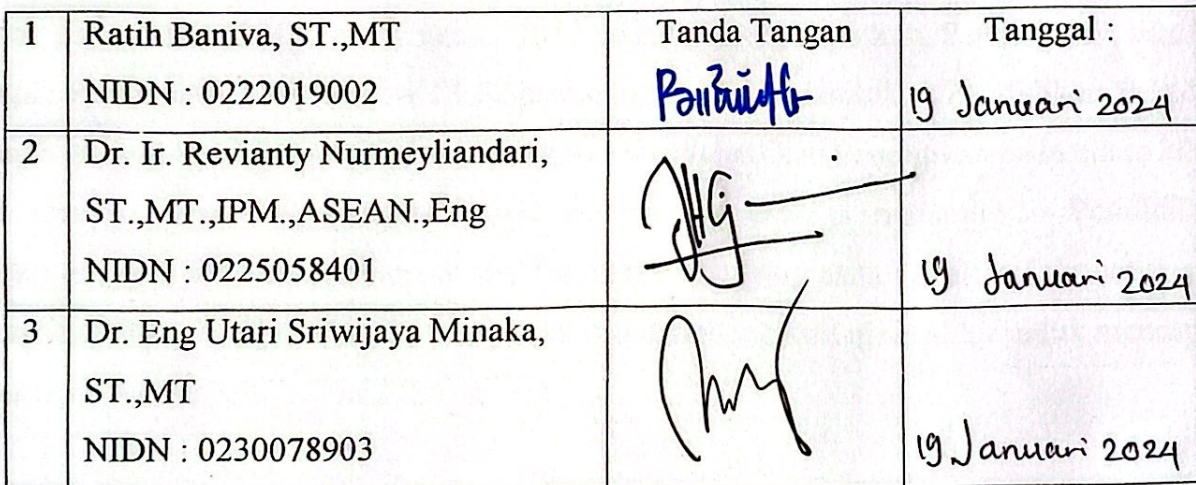 1 Ratih Baniva, ST.,MT Tanda Tangan Tanggal :
NIDN : 0222019002 19 Januari 2024
2 Dr. Ir. Revianty Nurmeyliandari,
ST.,MT.,IPM.,ASEAN.,Eng
NIDN : 0225058401 19 Januari 2024
3 Dr. Eng Utari Sriwijaya Minaka,
ST.,MT
NIDN : 0230078903 19 Januari 2024